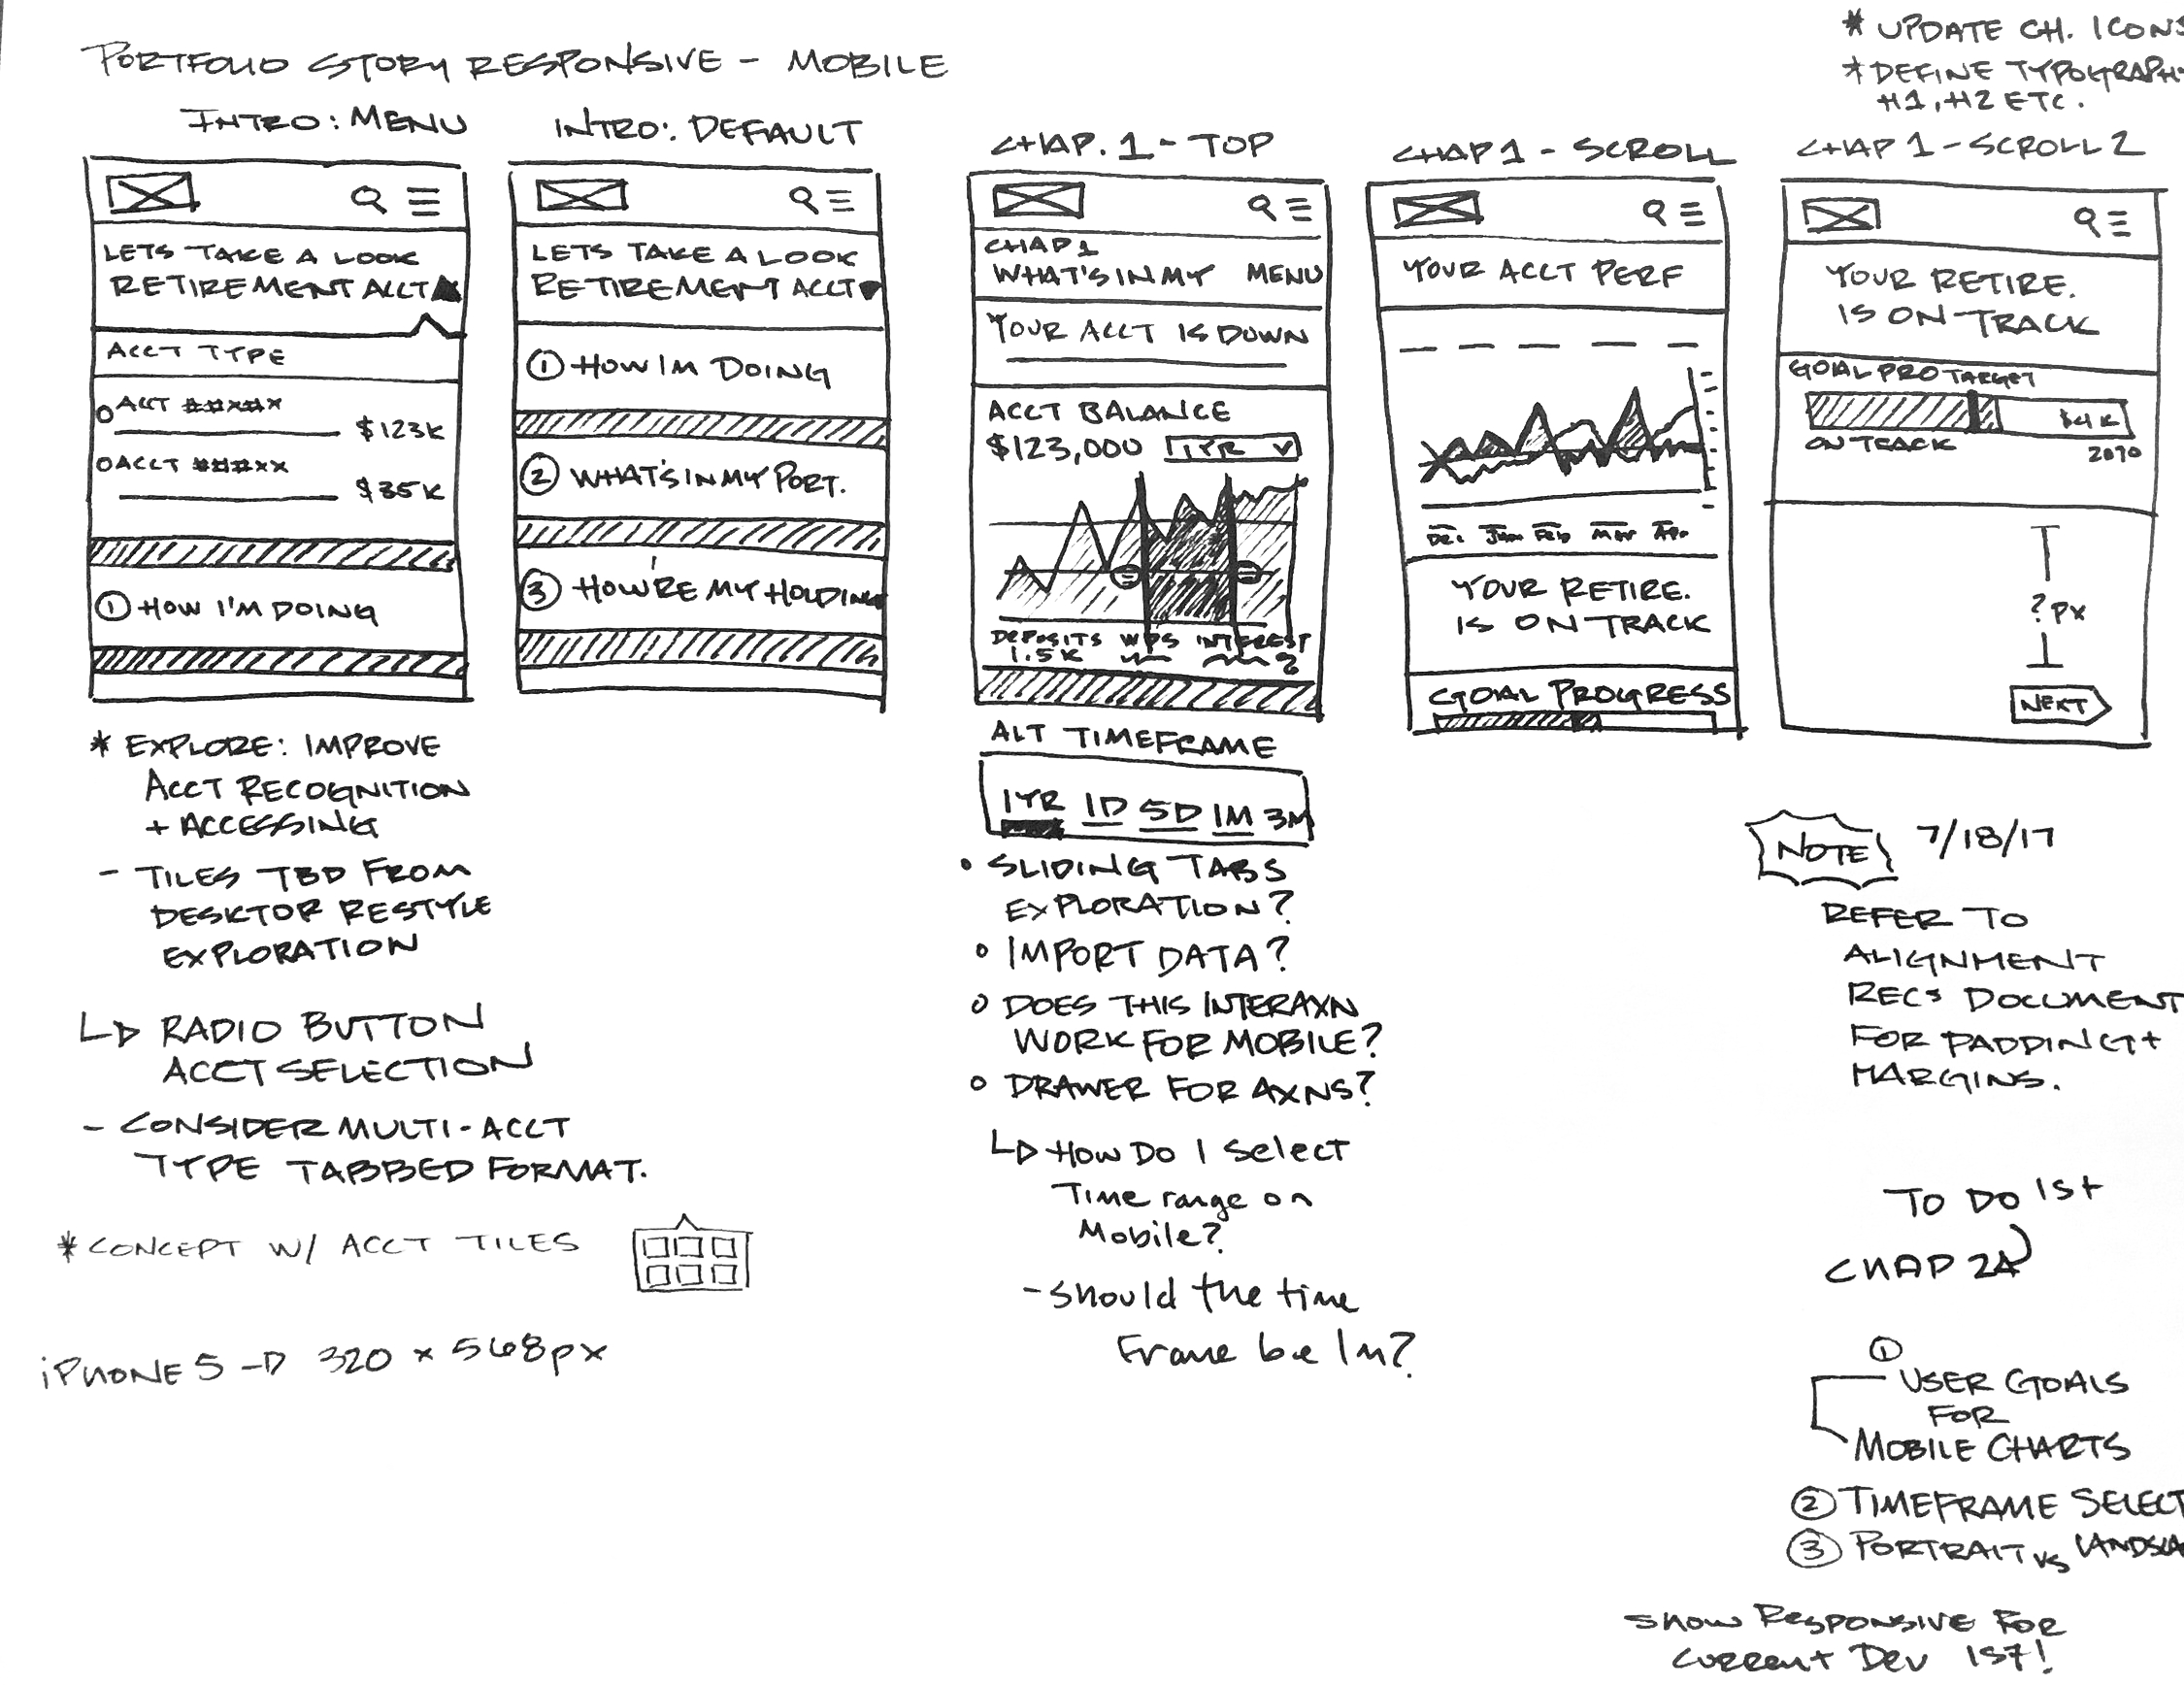 PORTFOLIO STORY RESPONSIVE - MOBILE
* UPDATE CH. ICONS
* DEFINE TYPOGRAPH
H1, H2 ETC.
INTRO: MENU
LETS TAKE A LOOK
RETIREMENT ACCT
ACCT TYPE
ACCT ##x#x
$123K
ACCT ###xx
$35K
1 HOW I'M DOING
* EXPLORE: IMPROVE
ACCT RECOGNITION
+ ACCESSING
- TILES TBD FROM
DESKTOP RESTYLE
EXPLORATION
RADIO BUTTON
ACCT SELECTION
- CONSIDER MULTI-ACCT
TYPE TABBED FORMAT.
* CONCEPT W/ ACCT TILES
iPHONE 5 - 320 x 568px
INTRO: DEFAULT
LETS TAKE A LOOK
RETIREMENT ACCT
1 HOW IM DOING
2 WHAT'S IN MY PORT.
3 HOW'RE MY HOLDING
CHAP. 1 - TOP
CHAP 1
WHAT'S IN MY MENU
YOUR ACCT IS DOWN
ACCT BALANCE
$123,000 1YR
DEPOSITS INTEREST
1.5K
ALT TIMEFRAME
1YR 1D 5D 1M 3M
• SLIDING TABS
EXPLORATION?
• IMPORT DATA?
• DOES THIS INTERAXN
WORK FOR MOBILE?
• DRAWER FOR AXNS?
HOW DO I Select
Time range on
Mobile?
- Should the time
Frame be 1m?
CHAP 1 - SCROLL
YOUR ACCT PERF
Dec Jan Feb Mar Apr
YOUR RETIRE.
IS ON TRACK
GOAL PROGRESS
CHAP 1 - SCROLL 2
YOUR RETIRE.
IS ON TRACK
GOAL PRO TARGET
$4K
ON TRACK
2070
? px
NEXT
NOTE 7/18/17
REFER TO
ALIGNMENT
RECS DOCUMENT
FOR PADDING +
MARGINS.
TO DO 1st
CHAP 2A
1
USER GOALS
FOR
MOBILE CHARTS
2 TIMEFRAME SELECT
3 PORTRAIT vs LANDSCA
Show Responsive For
Current Dev 1st!